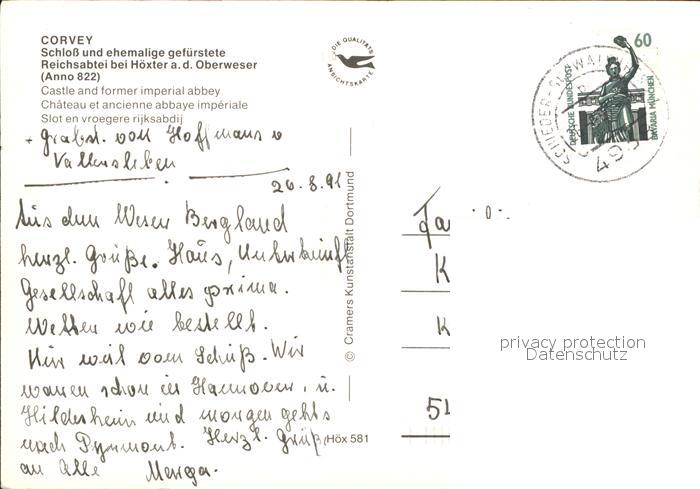 CORVEY
Schloß und ehemalige gefürstete
Reichsabtei bei Höxter a. d. Oberweser
(Anno 822)
Castle and former imperial abbey
Château et ancienne abbaye impériale
Slot en vroegere rijksabdij
DIE QUALITÄTS
ANSICHTSKARTE
+ Grabst. von Hoffmans v
Vallersleben
20.8.91
Aus dem Weser Bergland
herzl. Grüße. Haus, Unterkunft
Gesellschaft alles prima.
Wetter wie bestellt.
Wir waren schon in Hannover, u.
Hildesheim und morgen gehts
nach Pyrmont. Herzl. Grüße
an Alle
© Cramers Kunstanstalt Dortmund
Höx 581
60
DEUTSCHE BUNDESPOST
BAVARIA MÜNCHEN
SCHIEDER-SCHWALENBERG
Fa
K
K
51
privacy protection
Datenschutz